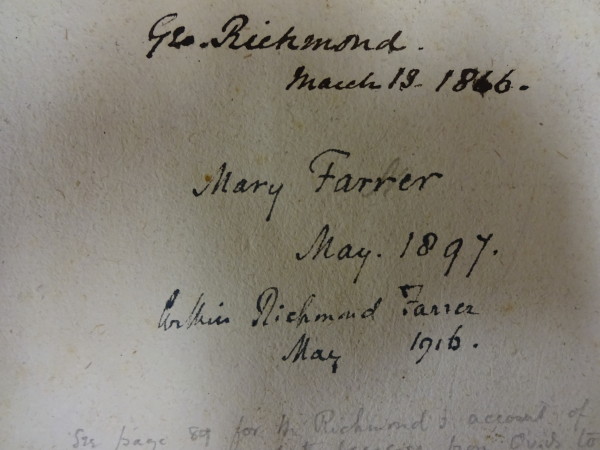 Geo. Richmond.
March 13 - 1866.
Mary Farrer
May. 1897.
Richmond Farrer
May 1916.
See page 89 for Richmond's account of
to